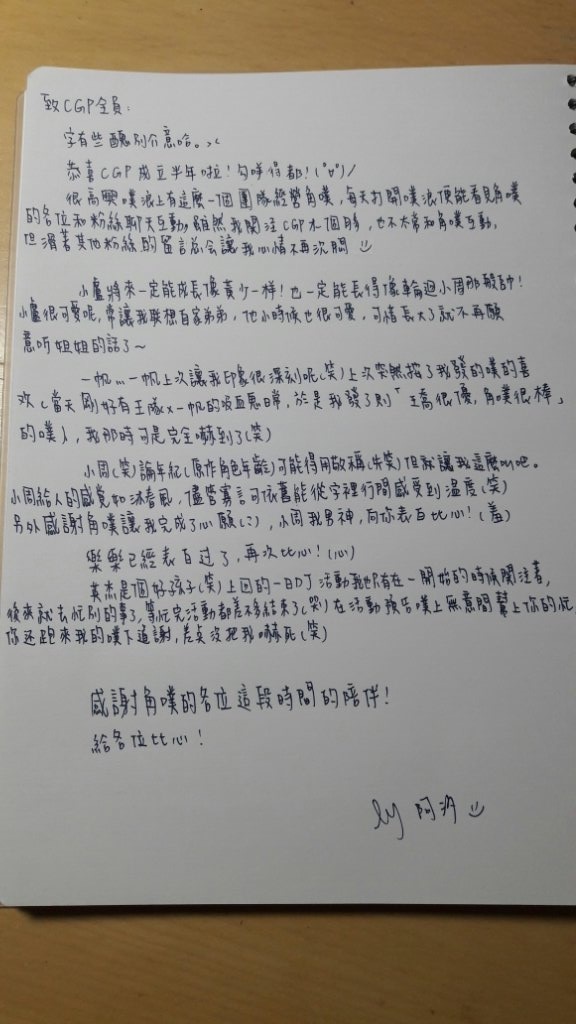 致CGP全員：
字有些醜別介意哈。><
恭喜CGP成立半年啦！ 得都！(°∀°)/
很高興噗浪上有這麼一個團隊經營角噗，每天打開噗浪便能看見角噗
的各位和粉絲聊天互動，雖然我關注CGP才個月，也不太常和角噗互動，
但滑著其他粉絲的留言总会讓我心情不再次悶
小盧將來一定能成長像黃少一樣！也一定能長得像輪迴小周那般帥！
小盧很可愛呢，常讓我联想自家弟弟，他小時候也很可愛，可惜長大了就不再願
意听姐姐的話了～
一帆…一帆上次讓我印象很深刻呢(笑)上次突然按了我發的噗的喜
欢(當天剛好有王隊x一帆的吸血鬼日常，於是我發了則「王喬很優，角噗很棒」
的噗)，我那時可是完全嚇到了(笑)
小周(笑)論年紀(原作角色年齡)可能得用敬稱(失笑)但就讓我這麼叫吧。
小周給人的感覺如沐春風，儘管寡言可依舊能從字裡行間感受到溫度(笑)
另外感謝角噗讓我完成了心願(？)，小周我男神，向你表白比心！(羞)
樂樂已經表白过了，再次比心！(心)
英杰是個好孩子(笑)上回的一日DJ活動我只有在一開始的時候關注著，
後來就去忙別的事了，等忙完活動都差不多結束了(哭)在活動預告噗上無意間幫上你的忙
你还跑來我的噗下道謝，差点沒把我嚇死(笑)
感謝角噗的各位這段時間的陪伴！
給各位比心！
by 阿汐